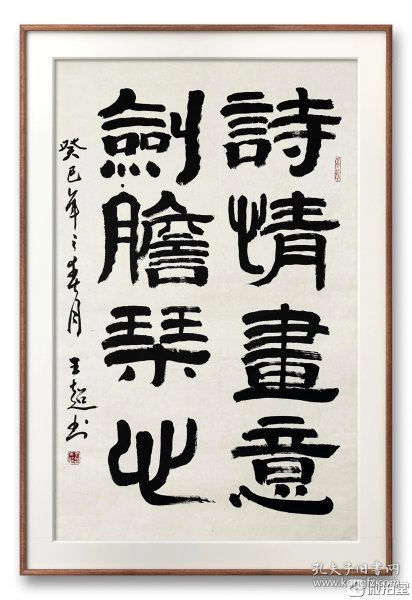 詩情畫意
劍膽琴心
癸巳年之春月 王超书
孔夫子旧书网
www.kongfz.com
微拍堂